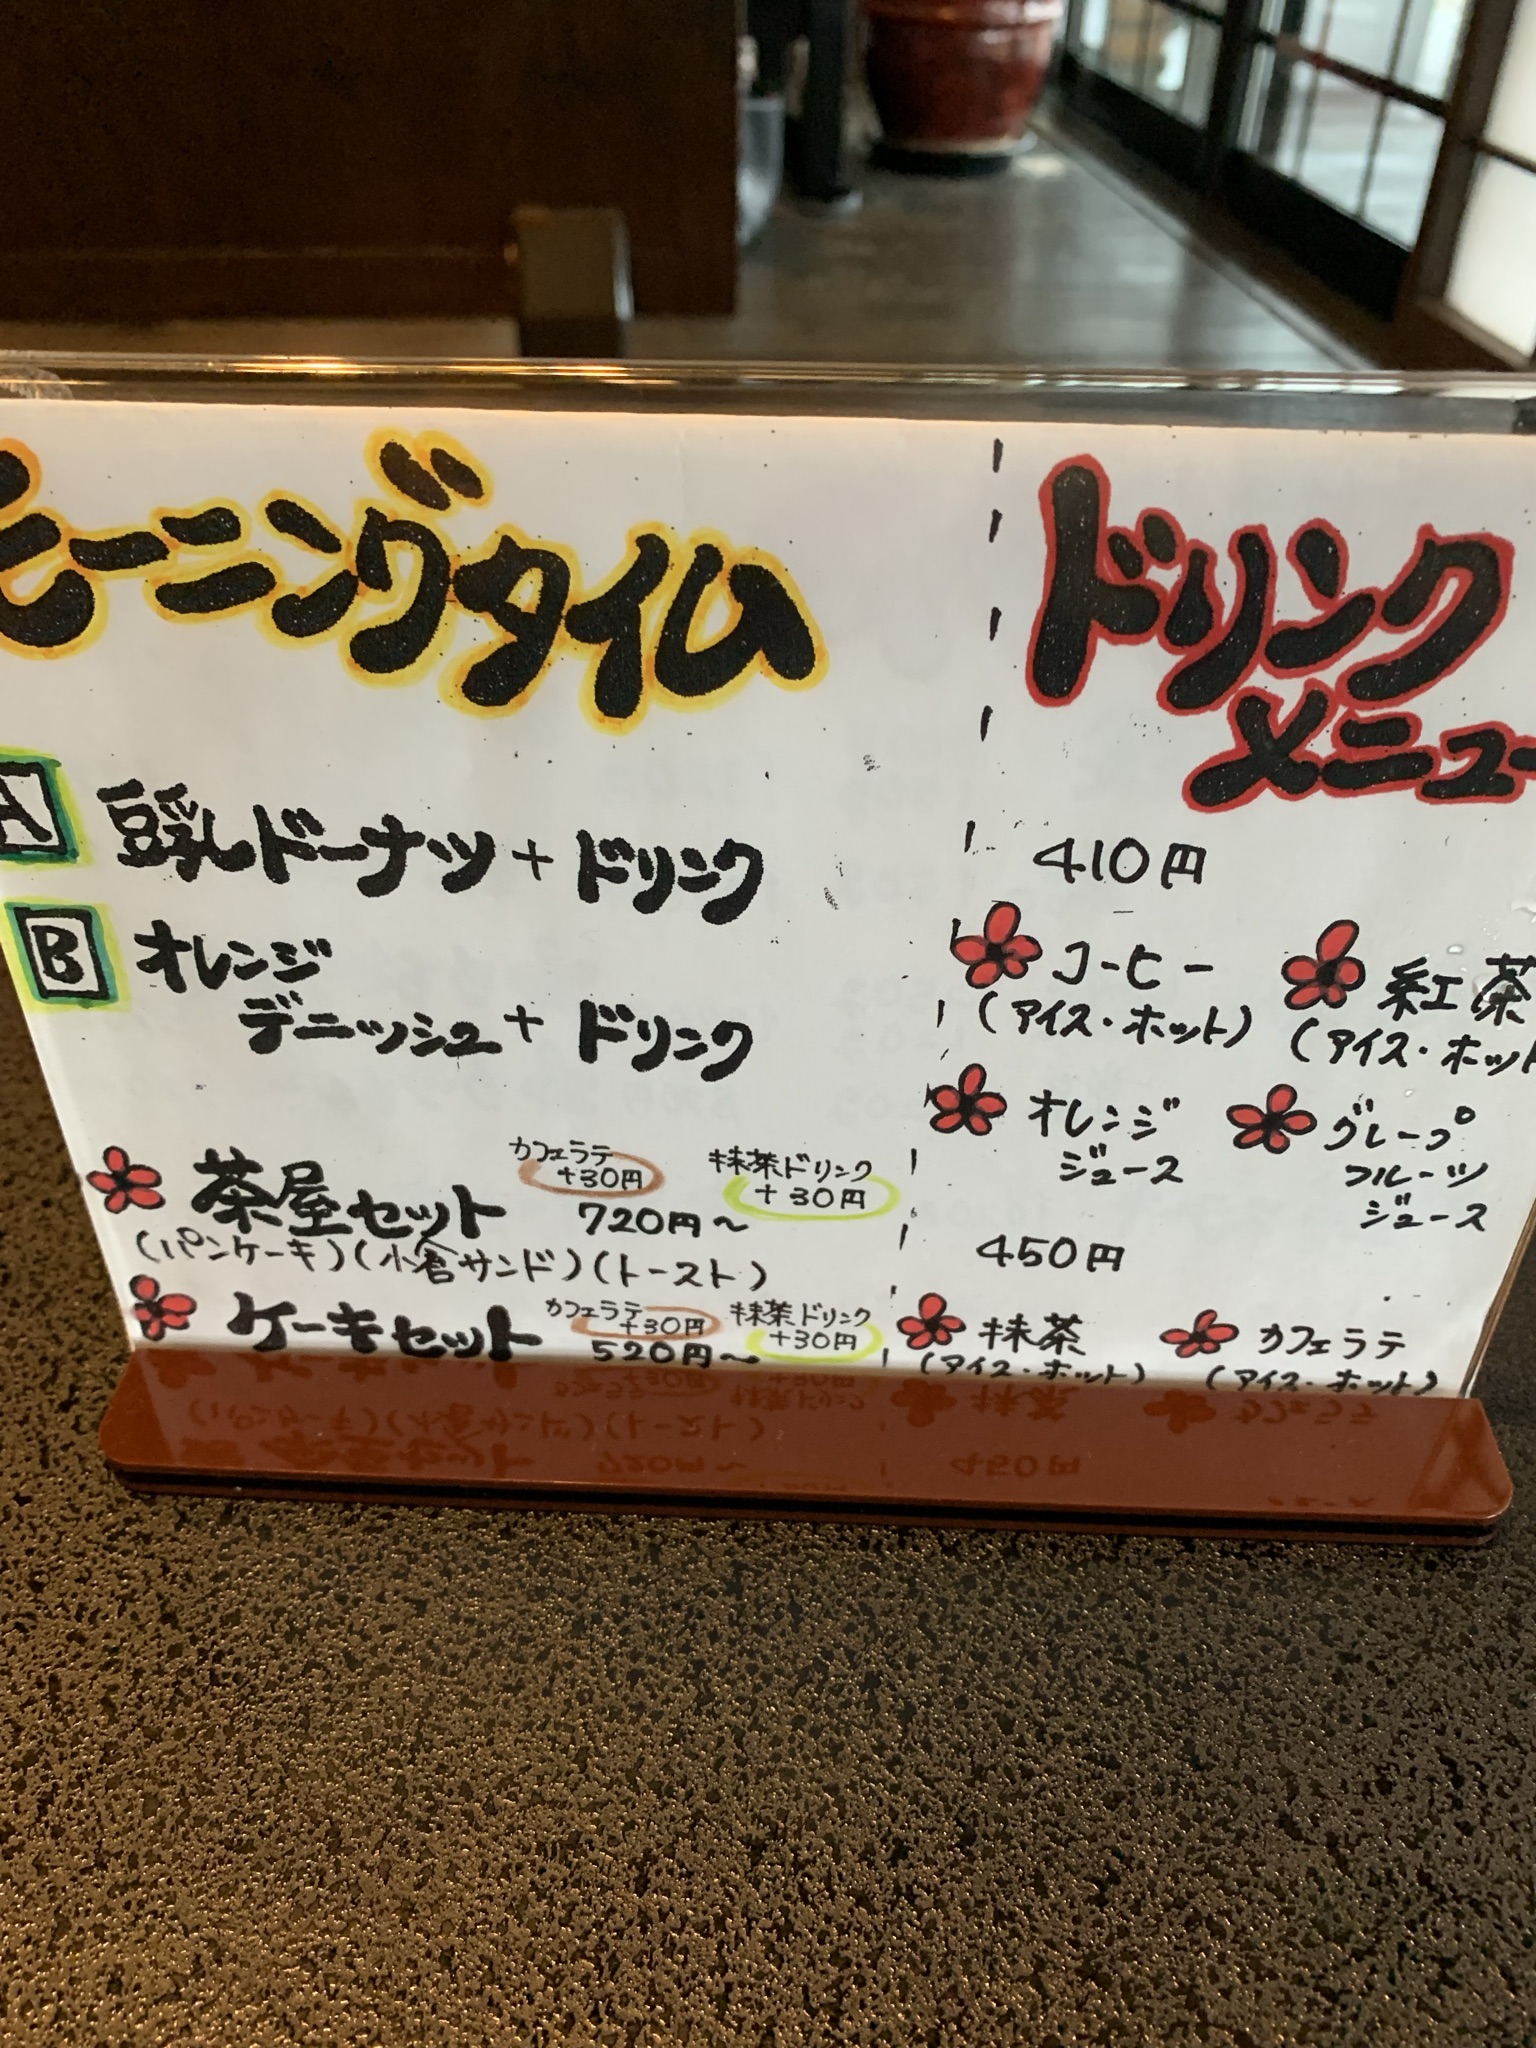 モーニングタイム
A 豆乳ドーナツ+ドリンク
B オレンジ
デニッシュ+ドリンク
カフェラテ
+30円
抹茶ドリンク
+30円
茶屋セット 720円~
(パンケーキ)(小倉サンド)(トースト)
カフェラテ
+30円
抹茶ドリンク
+30円
ケーキセット 520円~
ドリンク
メニュー
410円
コーヒー
(アイス・ホット)
紅茶
(アイス・ホット
オレンジ
ジュース
グレープ
フルーツ
ジュース
450円
抹茶
(アイス・ホット)
カフェラテ
(アイス・ホット)